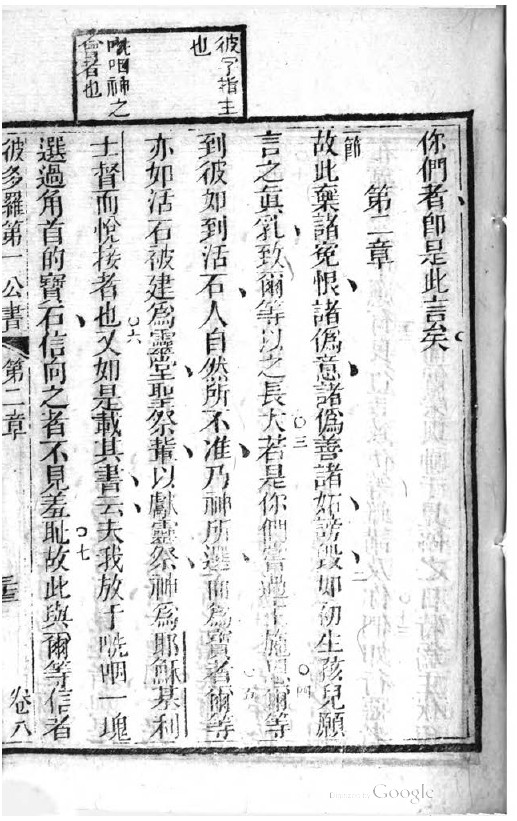 彼字指主
也
㕸咽神之
會者也
你們者卽是此言矣
第二章
節
故此棄諸冤恨諸僞意諸僞善諸妬謗毀二如初生孩兒願
言之眞乳致爾等以之長大三若是你們嘗過主施恩爾等四
到彼如到活石人自然所不准乃神所選而爲寶者爾等五
亦如活石被建爲靈堂聖祭輩以獻靈祭神爲耶穌基利
士督而悅接者也六又如是載其書云夫我放于㕸咽一塊
選過角首的寶石信向之者不見羞恥七故此與爾等信者
彼多羅第一公書 第二章 三 卷八
Google